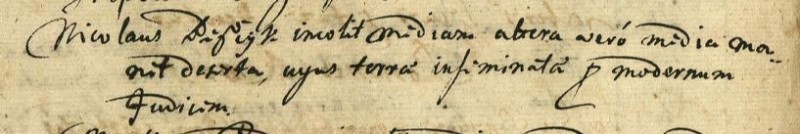 Nicolaus incolit mediam altera verò media ma-
net deserta, cuyus terrae inseminatae p modernum
Judicem.